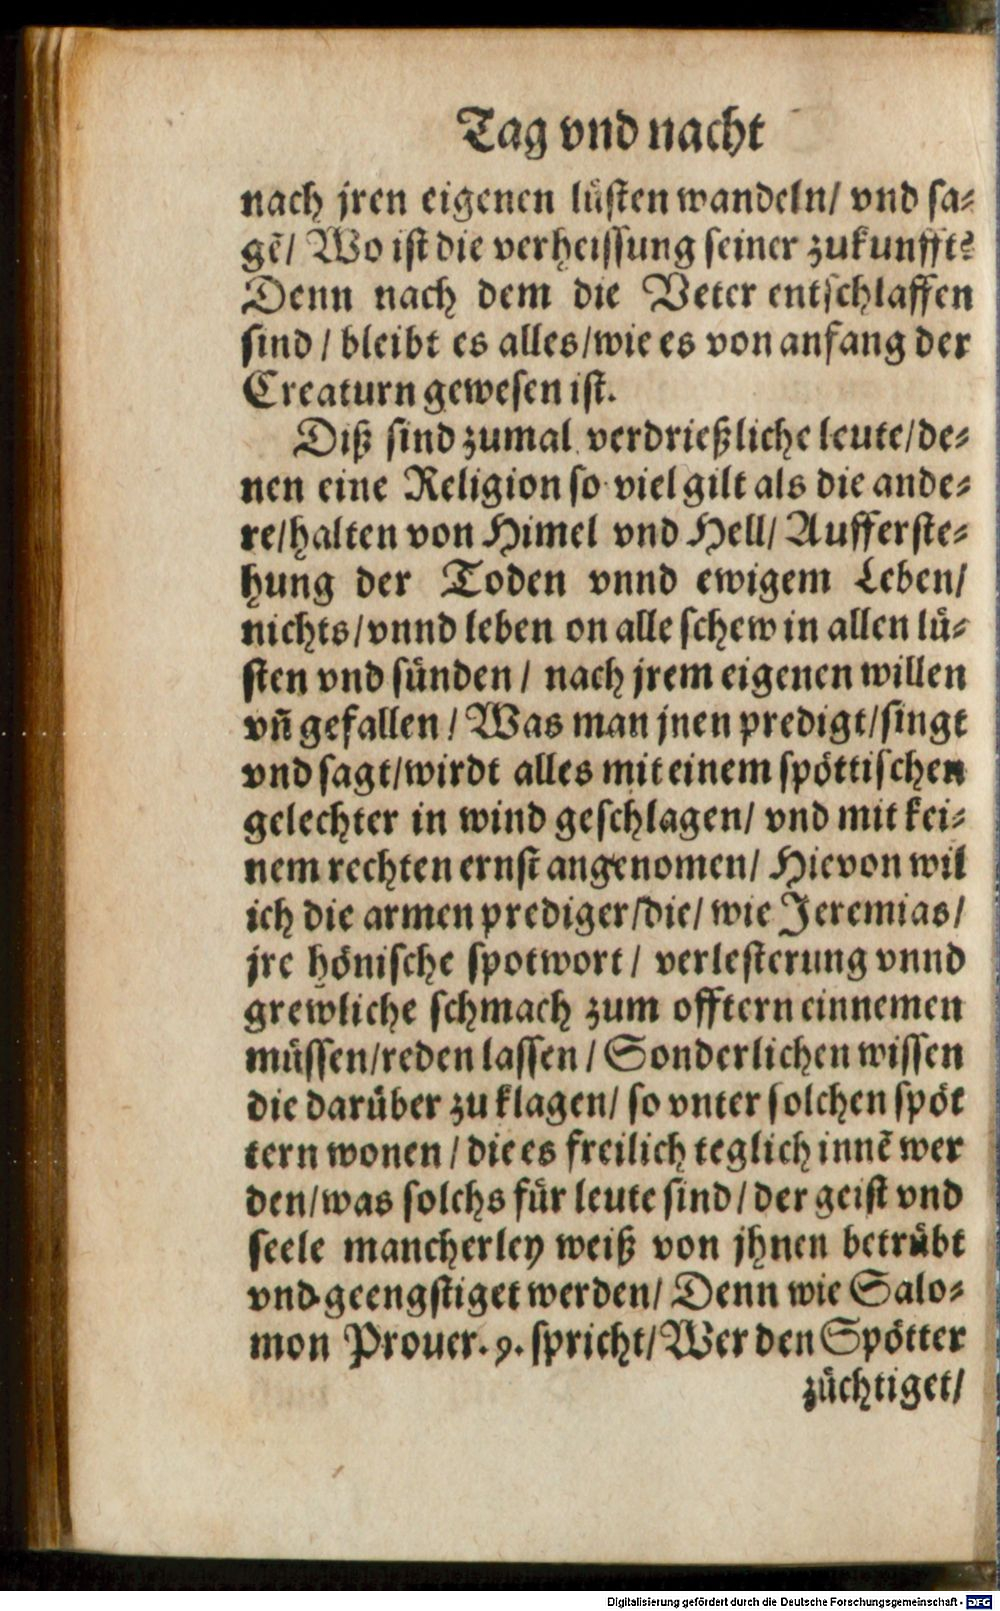 Tag vnd nacht
nach jren eigenen lüſten wandeln/ vnd ſa⸗
gē/ Wo iſt die verheiſſung ſeiner zukunfft?
Denn nach dem die Veter entſchlaffen
ſind / bleibt es alles/wie es von anfang der
Creaturn geweſen iſt.
Diß ſind zumal verdrießliche leute/de⸗
nen eine Religion ſo viel gilt als die ande⸗
re/halten von Himel vnd Hell/ Aufferſte⸗
hung der Toden vnnd ewigem Leben/
nichts/vnnd leben on alle ſchew in allen lü⸗
ſten vnd ſünden / nach jrem eigenen willen
vñ gefallen / Was man jnen predigt/ſingt
vnd ſagt/wirdt alles mit einem ſpöttiſchen
gelechter in wind geſchlagen/ vnd mit kei⸗
nem rechten ernſt angenomen/ Hievon wil
ich die armen prediger/die/ wie Jeremias/
jre höniſche ſpotwort / verleſterung vnnd
grewliche ſchmach zum offtern einnemen
müſſen/reden laſſen / Sonderlichen wiſſen
die darüber zu klagen/ ſo vnter ſolchen ſpöt
tern wonen / die es freilich teglich innē wer
den/was ſolchs für leute ſind / der geiſt vnd
ſeele mancherley weiß von jhnen betrübt
vnd geengſtiget werden/ Denn wie Salo⸗
mon Prouer. 9. ſpricht/ Wer den Spötter
züchtiget/
Digitalisierung gefördert durch die Deutsche Forschungsgemeinschaft - DFG